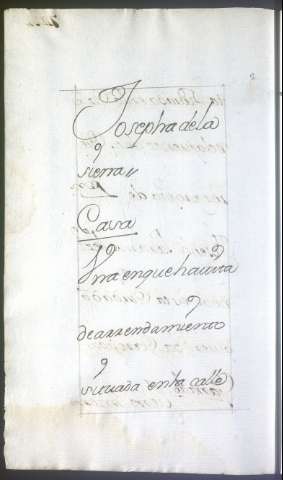 Josepha de la
sierra
Casa
Una en que havita
de arrendamiento
situada en la calle